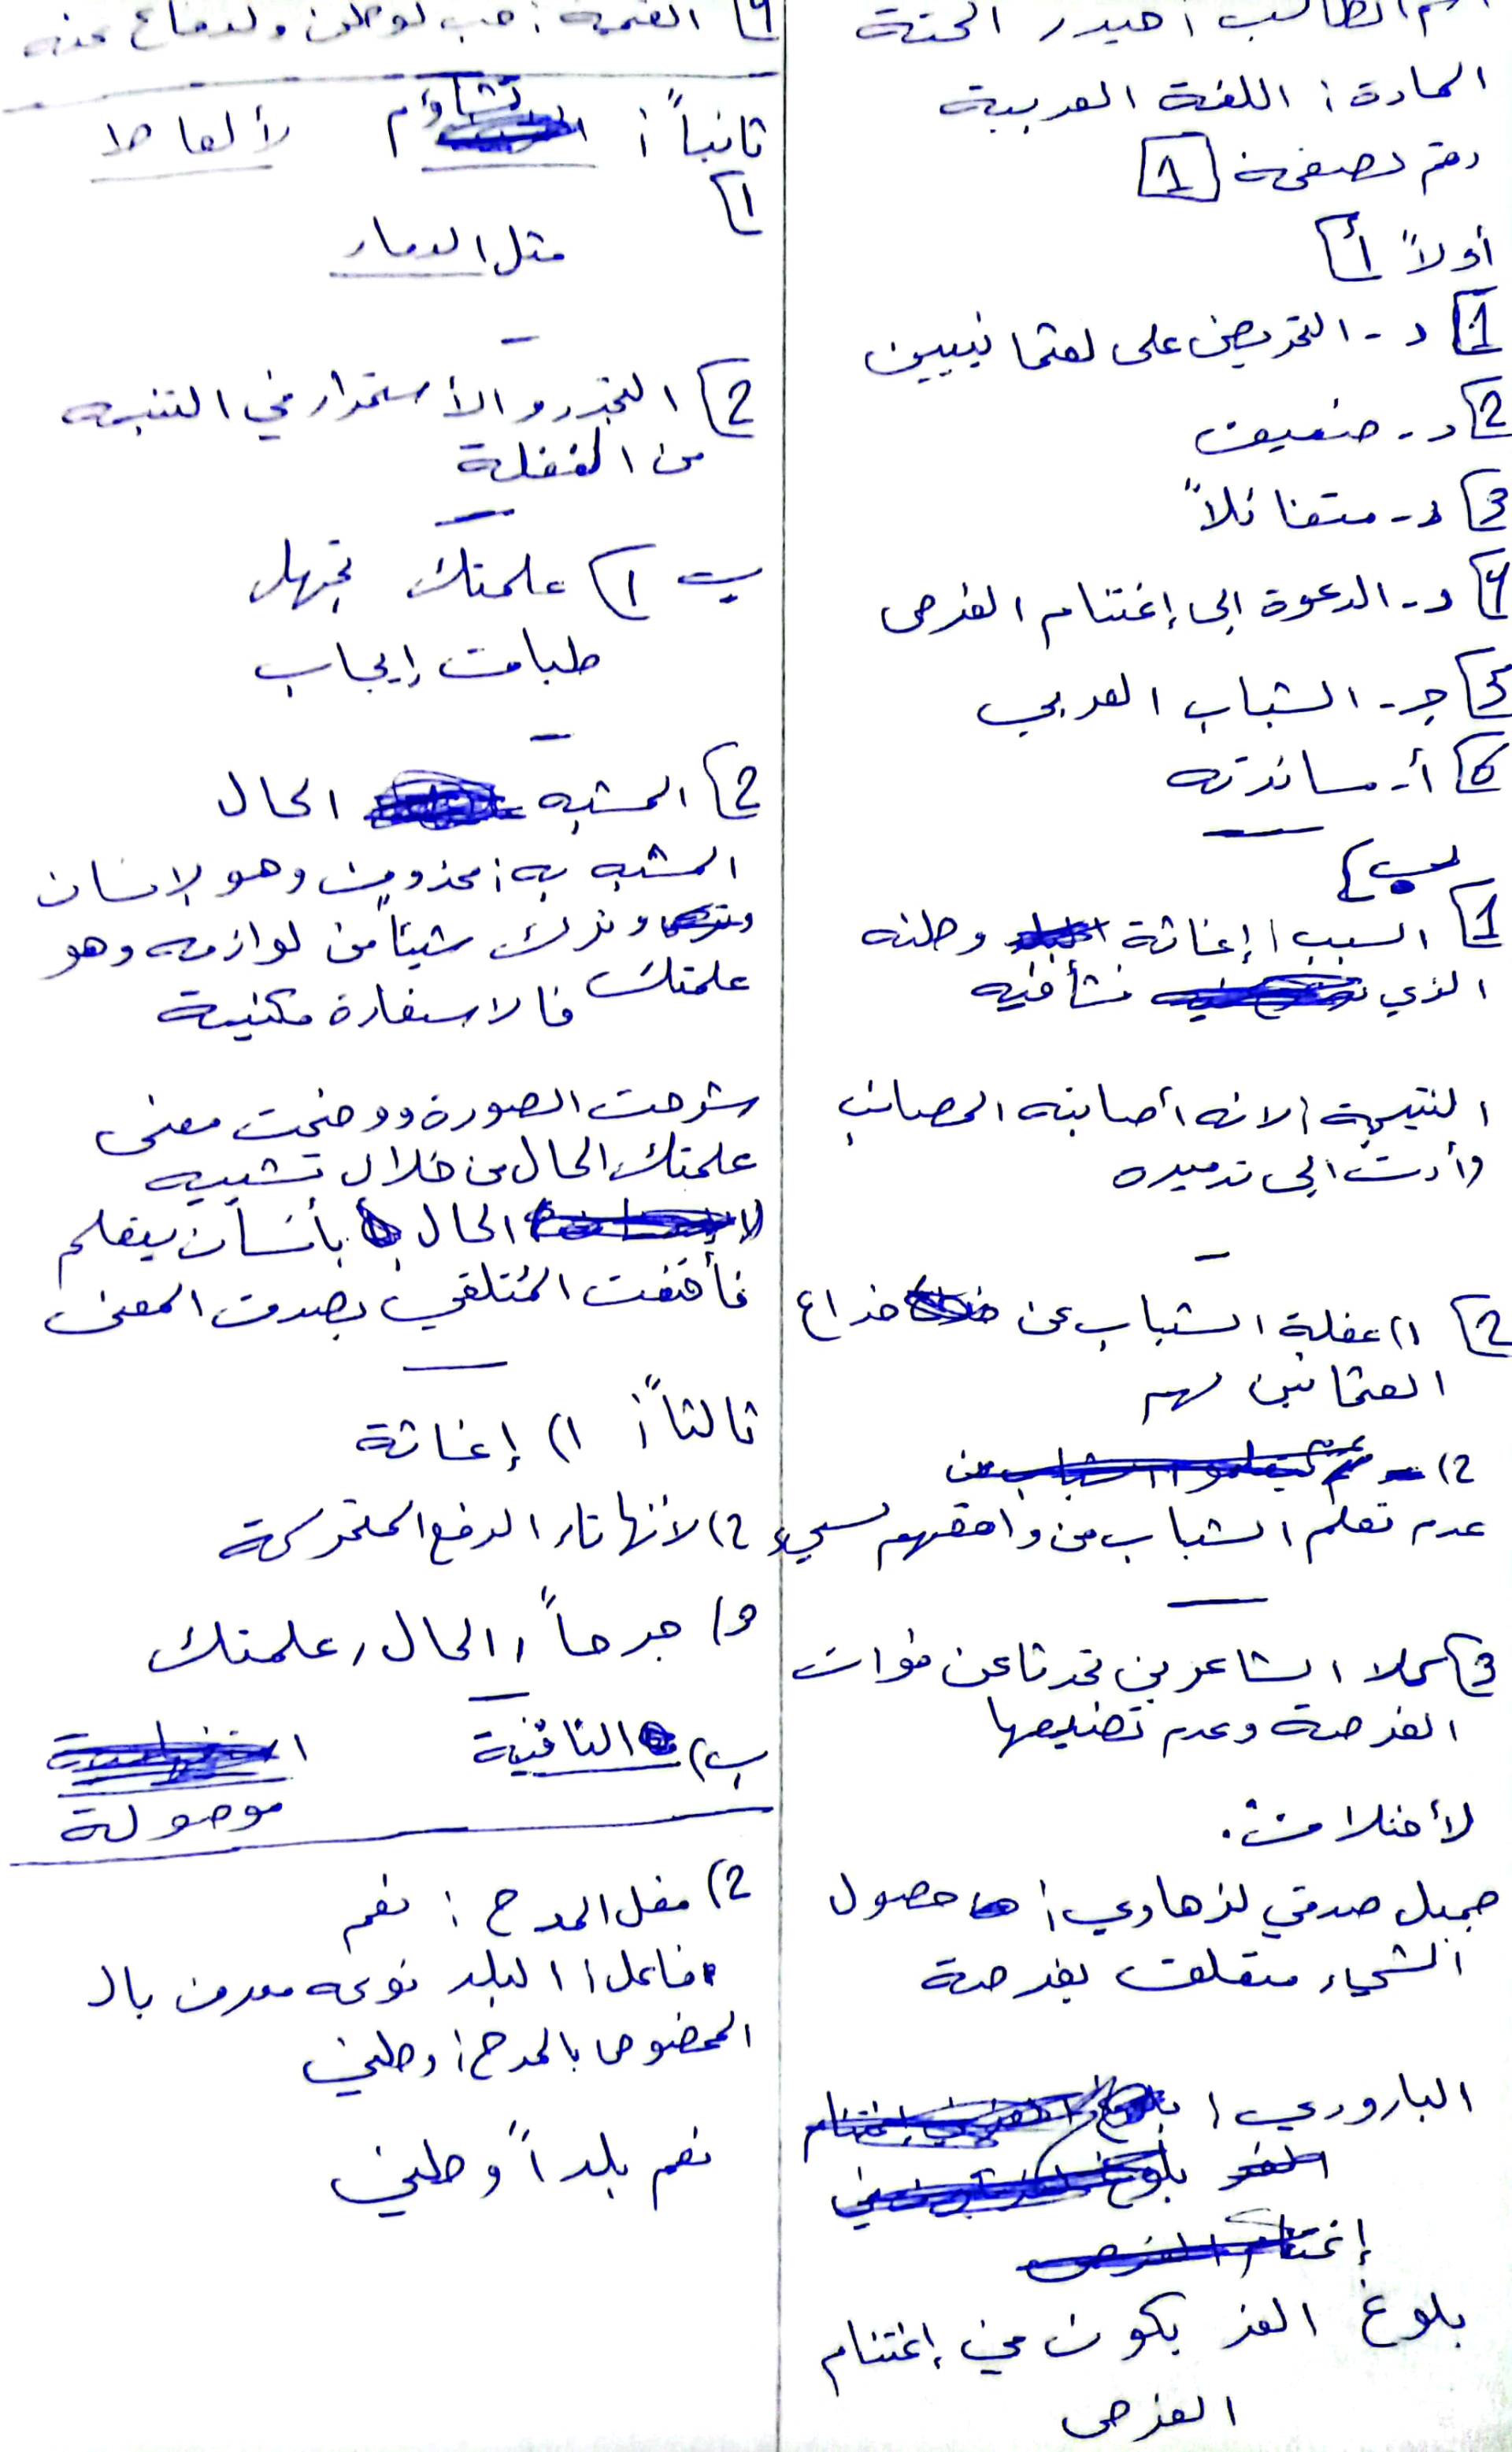 الطالب : حيدر الحنة
المادة : اللغة العربية
رقم لصفحة 1
أولاً أ
1 د - التحريض على لعثمانييين
2 د - ضعيف
3 د - متفائلاً
4 د - الدعوة الى إغتنام الفرص
5 جـ - الشباب العربي
6 أ - مساندته
ب
1 السبب : إغاثة وطنه
الذي نشأ فيه
النتيجة : لانه أصابته المصائب
وأدت الى تدميره
2 1) غفلة الشباب عن خداع
العثمانين لهم
2)
عدم تعلم الشباب من واقعهم لسيء
3 كلا الشاعرين تحدثا عن فوات
الفرصة وعدم تضيعها
لأختلاف.
جميل صدقي لزهاوي : حصول
الشيء متعلق بفرصة
البارودي :
بلوغ العز يكون في إغتنام
الفرص
4 القيمة : حب لوطن ولدفاع عنه
ثانياً : التشاؤم لألفاظ
1
مثل الدمار
2 التجدد والأستمرار في التنبه
من الغفلة
ب 1 علمتك تجهل
طباق إيجاب
2 المشبه الحال
المشبه به : محذوف وهو لإنسان
وترك شيئاً من لوازمه وهو
علمتك فالاستعارة مكنية
شرحت الصورة ووضحت معنى
علمتك الحال من خلال تشبيه
الحال بأنسان يتعلم
فأقنعت المُتلقي بصدق المعنى
ثالثاً : 1) إغاثة
2) لأنها تاء الرفع المتحركة
3) جرحاً , الحال , علمتك
ب) القافية
موصولة
2) فعل المدح : نعم
فاعل : البلد نوعه معرف بال
المخصوص بالمدح : وطني
نعم بلداً وطني